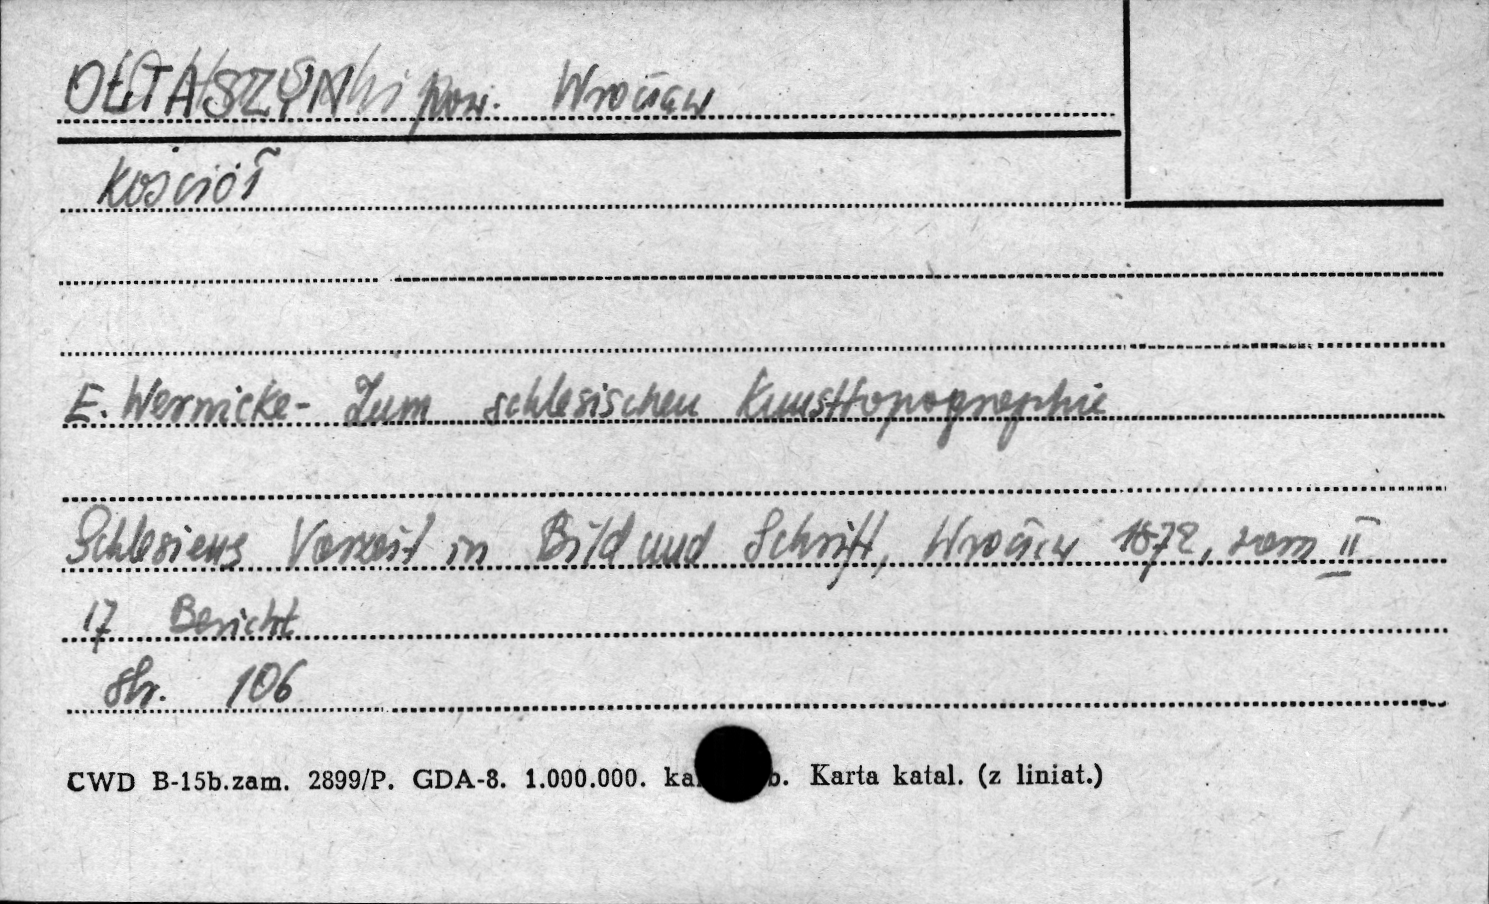 OŁTASZYN pow. Wrocław
Kościół
E. Wernicke - Zum schlesischen Kunsttopographie
Schlesiens Vorzeit in Bild und Schrift, Wrocław 1872, rom II
17 Bericht
str. 106
CWD B-15b.zam. 2899/P. GDA-8. 1.000.000. Karta katal. (z liniat.)